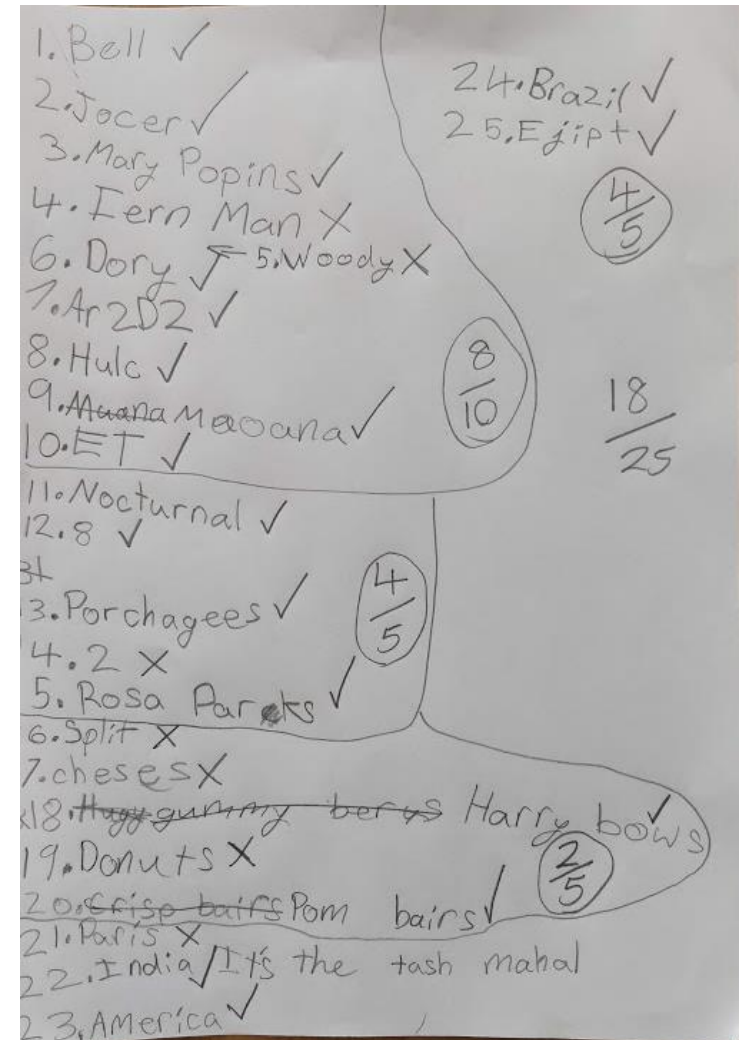 1. Bell ✓
2. Jocer ✓
3. Mary Popins ✓
4. Iern Man X
6. Dory ✓ ← 5. Woody X
7. Ar2D2 ✓
8. Hulc ✓
9. Muana Maoana ✓
10. ET ✓
8/10
11. Nocturnal ✓
12. 8 ✓
3. Porchagees ✓
4. 2 X
5. Rosa Parks ✓
4/5
6. Split X
7. cheses X
18. gummy berys Harry bows ✓
19. Donuts X
20. Crisp bairs Pom bairs ✓
2/5
21. Paris X
22. India ✓ It's the tash mahal
23. America ✓
24. Brazil ✓
25. Ejipt ✓
4/5
18/25